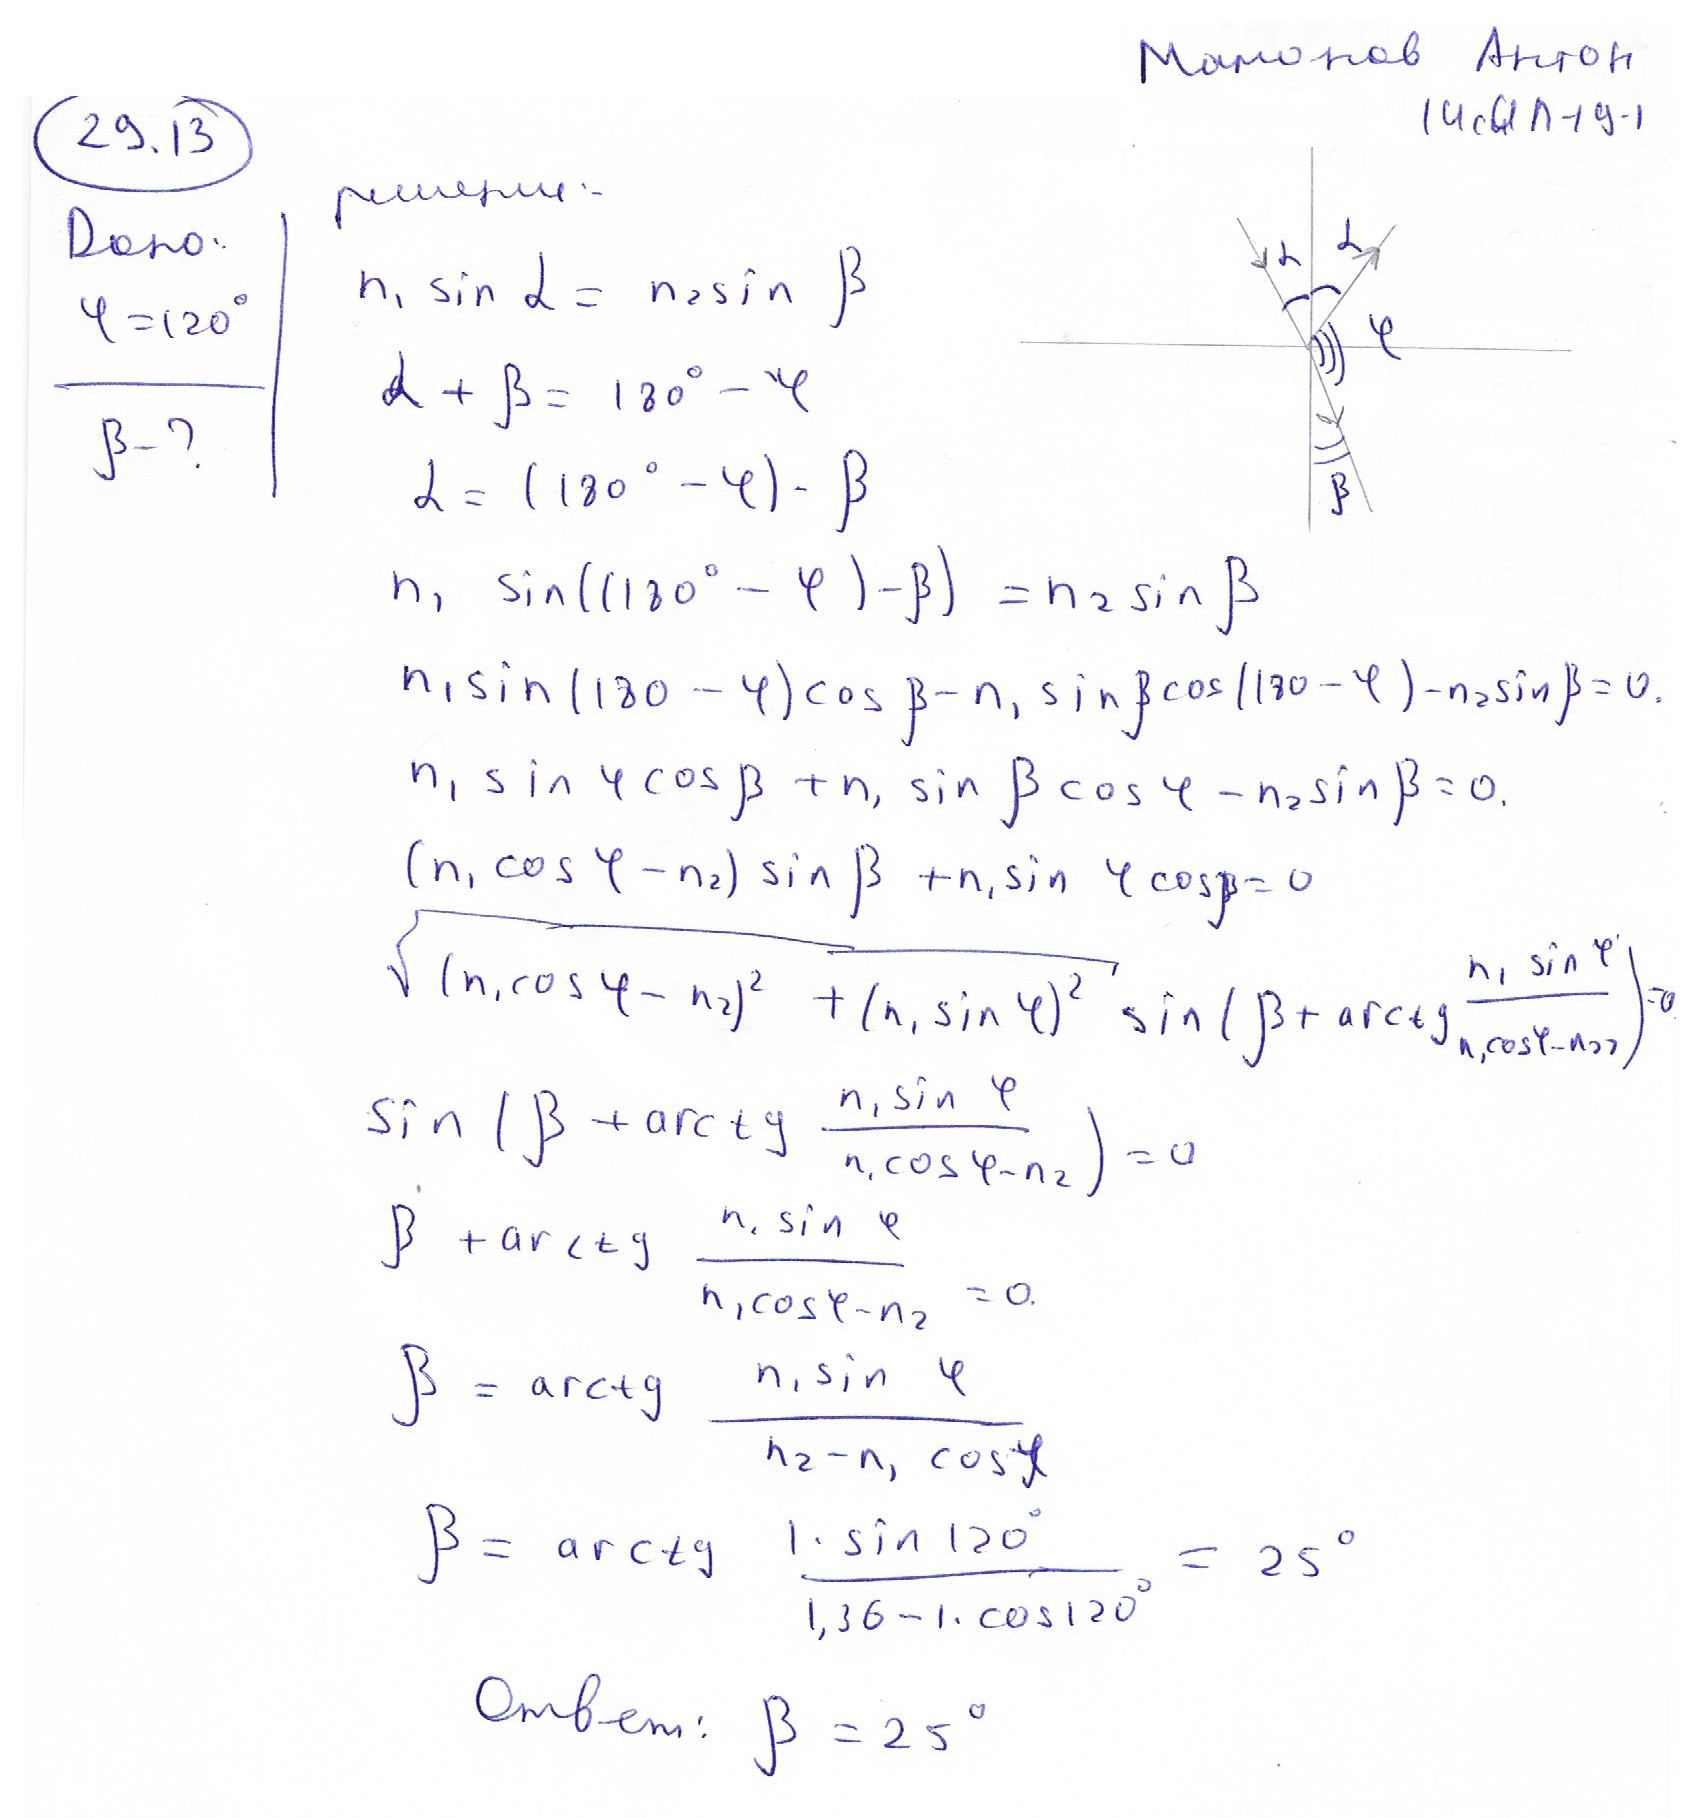 Мамонов Антон
29.13
Дано:
φ=120°
β-?
решение:
n₁ sin α = n₂ sin β
α + β = 180° - φ
α = (180° - φ) - β
n₁ sin((180° - φ) - β) = n₂ sin β
n₁ sin(180 - φ) cos β - n₁ sin β cos(180 - φ) - n₂ sin β = 0.
n₁ sin φ cos β + n₁ sin β cos φ - n₂ sin β = 0.
(n₁ cos φ - n₂) sin β + n₁ sin φ cos β = 0
√((n₁ cos φ - n₂)² + (n₁ sin φ)²) sin(β + arctg (n₁ sin φ)/(n₁ cos φ - n₂)) = 0
sin(β + arctg (n₁ sin φ)/(n₁ cos φ - n₂)) = 0
β + arctg (n₁ sin φ)/(n₁ cos φ - n₂) = 0.
β = arctg (n₁ sin φ)/(n₂ - n₁ cos φ)
β = arctg (1·sin 120°)/(1,36 - 1·cos 120°) = 25°
Ответ: β = 25°
α α
φ
β